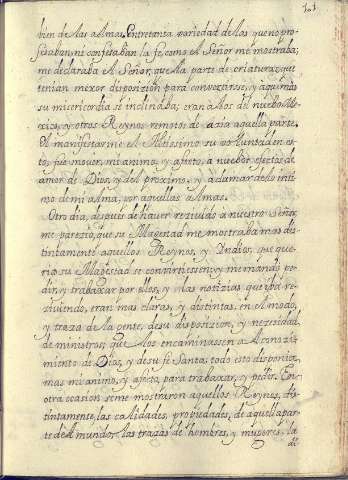 101
bien de las almas. Entre tanta variedad de los que no pro-
fesaban, ni confesaban la fe, como el Señor me mostraba;
me declaraba el Señor, que la parte de criaturas, que
tenian mexor disposizion para convertirse, y a quienes
su misericordia se inclinaba; eran a los del nuebo Me-
xico, y otros Reynos remotos de azia aquella parte.
El manifestarme el Altissimo su voluntad en es-
to, fue mover mi animo, y afecto, a nuebos afectos de
amor de Dios, y del proximo, y a clamar de lo inti-
mo de mi alma, por aquellas almas.
Otro dia, despues de haver rezivido a nuestro Señor,
me parezio, que su Magestad me mostraba mas dis-
tintamente aquellos Reynos, y Yndios, que que-
ria su Magestad se convirtiessen, y me mando pe-
dir, y trabaxar por ellos, y las noticias que iba re-
ziviendo, eran mas claras, y distintas, en el modo,
y traza de la gente, de su disposizion, y nezesidad
de ministros, que los encaminassen a el conozi-
miento de Dios, y de su fe Santa; todo esto disponia,
mas mi animo, y afecto, para trabaxar, y pedir. En
otra ocasion se me mostraron aquellos Reynos, dis-
tintamente, las calidades, propiedades, de aquella par-
te del mundo, las trazas de hombres, y mugeres, la